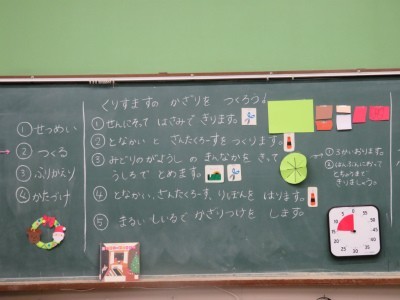 くりすますの かざりを つくろう♪
① せつめい
② つくる
③ ふりかえり
④ かたづけ
① せんにそって はさみで きります。
② となかい と さんたくろーすを つくります。
③ みどりの がようし の まんなか を きって
うしろで とめます。
④ となかい、さんたくろーす、りぼんを はります。
⑤ まるい しいるで かざりつけを します。
① 3かい おります。
② はんぶんにおって
とちゅうまで
きりましょう。